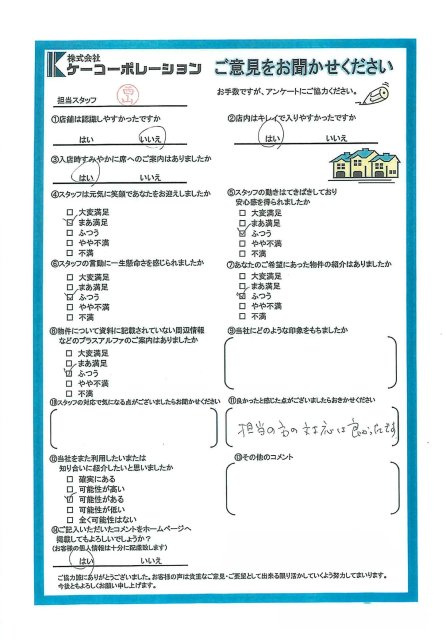 株式会社
ケーコーポレーション ご意見をお聞かせください
担当スタッフ
お手数ですが、アンケートにご協力ください。
①店舗は認識しやすかったですか
はい いいえ
②店内はキレイで入りやすかったですか
はい いいえ
③入店時すみやかに席へのご案内はありましたか
はい いいえ
④スタッフは元気に笑顔であなたをお迎えしましたか
□ 大変満足
□ まあ満足
□ ふつう
□ やや不満
□ 不満
⑤スタッフの動きはてきぱきしており
安心感を得られましたか
□ 大変満足
□ まあ満足
□ ふつう
□ やや不満
□ 不満
⑥スタッフの言動に一生懸命さを感じられましたか
□ 大変満足
□ まあ満足
□ ふつう
□ やや不満
□ 不満
⑦あなたのご希望にあった物件の紹介はありましたか
□ 大変満足
□ まあ満足
□ ふつう
□ やや不満
□ 不満
⑧物件について資料に記載されていない周辺情報
などのプラスアルファのご案内はありましたか
□ 大変満足
□ まあ満足
□ ふつう
□ やや不満
□ 不満
⑨当社にどのような印象をもちましたか
⑩スタッフの対応で気になる点がございましたらお聞かせください
⑪良かったと感じた点がございましたらおきかせください
担当の方の対応は良かったです
⑫当社をまた利用したいまたは
知り合いに紹介したいと思いましたか
□ 確実にある
□ 可能性が高い
□ 可能性がある
□ 可能性が低い
□ 全く可能性はない
⑬その他のコメント
⑭ご記入いただいたコメントをホームページへ
掲載してもよろしいでしょうか?
(お客様の個人情報は十分に配慮致します)
はい いいえ
ご協力誠にありがとうございました。お客様の声は貴重なご意見・ご要望として出来る限り活かしていくよう努力してまいります。
今後ともよろしくお願い申し上げます。